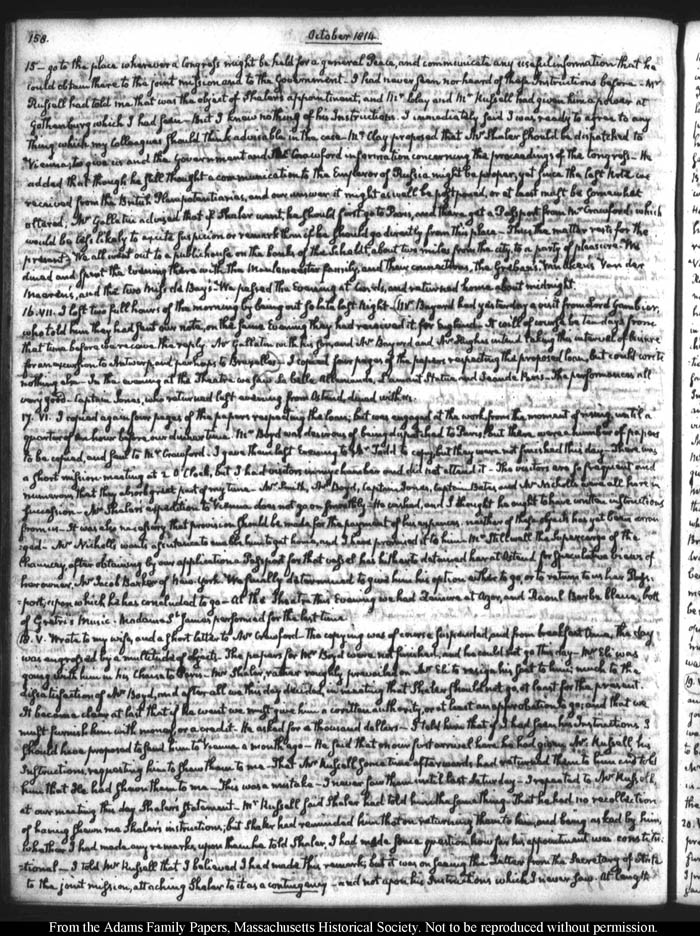 158.
October 1814.
15 — go to the place wherever a Congress might be held for a general Peace, and communicate any useful information that he
could obtain there to the joint mission and to the Government. I had never seen nor heard of these Instructions before — Mr
Russell had told me that was the object of Shaler's appointment, and Mr Clay and Mr Russell had given him a power at
Gothenburg which I had seen — But I knew nothing of his Instructions. I immediately said I was ready to agree to any
thing which my Colleagues should think advisable in the case — Mr Clay proposed that Mr Shaler should be dispatched to
Vienna, to give us and the Government and Mr Crawford information concerning the proceedings of the Congress — He
added that though he still thought a communication to the Emperor of Russia might be proper, yet since the last Note we
received from the British Plenipotentiaries, and our answer it might as well be postponed, or at least must be somewhat
altered. Mr Gallatin advised that if Shaler went, he should first go to Paris, and there get a Passport from Mr Crawford; which
would be less likely to excite suspicion or remark than if he should go directly from this place — Thus the matter rests for the
present — We all went out to a public house on the banks of the Scheldt, about two miles from the city, to a party of pleasure. We
dined and spent the Evening there with the Meulemeester family, and their connections, the Greban's, Van
and the two Miss de Bay's. We passed the Evening at Cards, and returned home about midnight.
16. VII. I lost two full hours of the morning by being out so late last Night. Mr Bayard had yesterday a visit from Lord Gambier,
who told him they had sent our note, on the same evening they had received it, for England. It will of course be ten days from
that time before we receive the reply. Mr Gallatin with his son, and Mr Bayard and Mr Hughes intend taking this interval of leisure
for an excursion to Antwerp, and perhaps to Bruxelles. I copied four pages of the papers respecting the proposed loan, but could write
nothing else. In the evening at the Theatre we saw La belle Allemande, l'amant Statue and — The performances all
very good. Captain Jones, who returned last evening from Ostend, dined with us.
17. VI. I copied again four pages of the papers respecting the loan; but was engaged at the work from the moment of rising, until a
quarter of an hour before our dinner time. Mr Boyd was desirous of being dispatched to Paris, but there were a number of papers
to be copied, and sent to Mr Crawford. I gave them last Evening to Mr Todd to copy, but they were not finished this day — There was
a short mission meeting at 2 O'Clock, but I had visitors in my chamber and did not attend it — The visitors are so frequent and
numerous that they absorb great part of my time. Mr Smith, Mr Boyd, Captain Jones, Captain Bates, and Mr Nicholls were all here in
succession. Mr Shaler's expedition to Vienna does not go on smoothly. He wished, and I thought he ought to have written instructions
from us — It was also necessary that provision should be made for the payment of his expences. neither of these objects has yet been arran
=ged — Mr Nicholls wants assistance to enable him to get home, and I have promised it to him. Mr Stillwell the Supercargo of the
Chauncey, after obtaining by our application a Passport for that vessel has hitherto detained her at Ostend, for speculative views of
her owner, Mr Jacob Barker of New-York. We finally determined to give him his option either to go, or to return to us her Pass-
=port; upon which he has concluded to go — At the Theatre this Evening we had Zemire et Azor, and Raoul Barbe bleue, both
of Gretry's Music. Madame St. James performed for the last time.
18. V. Wrote to my wife, and a short letter to Mr Crawford. The copying was of course suspended, and from breakfast time, the day
was engrossed by a multitude of objects. The papers for Mr Boyd were not finished, and he could not go this day — Mr Ele was
going with him in his Chaise to Paris — Mr Shaler, rather roughly prevailed on Mr Ele to resign his seat to him, much to the
dissatisfaction of Mr Boyd, and after all we this day decided, in meeting that Shaler should not go, at least for the present.
It became clear at last that if he went we must give him a written authority, or at least an approbation to go; and that we
must furnish him with money, or a credit. He asked for a thousand dollars — I told him that if I had seen his Instructions I
should have proposed to send him to Vienna a month ago — He said that on our first arrival here he had given Mr Russell his
Instructions, requesting him to shew them to me — That Mr Russell some time afterwards had returned them to him and told
him that He had shewn them to me — This was a mistake — I never saw them until last Saturday — I repeated to Mr Russell,
at our meeting this day Shaler's statement — Mr Russell said Shaler had told him the same thing. That he had no recollection
of having shewn me Shaler's instructions, but Shaler had reminded him that on returning them to him, and being asked by him,
whether I had made any remarks upon them he told Shaler, I had made some question how far his appointment was constitu-
=tional — I told Mr Russell that I believed I had made this remark, but it was on seeing the Letter from the Secretary of State
to the joint mission, attaching Shaler to it as a contingency — and not upon his Instructions which I never saw. At length
From the Adams Family Papers, Massachusetts Historical Society. Not to be reproduced without permission.